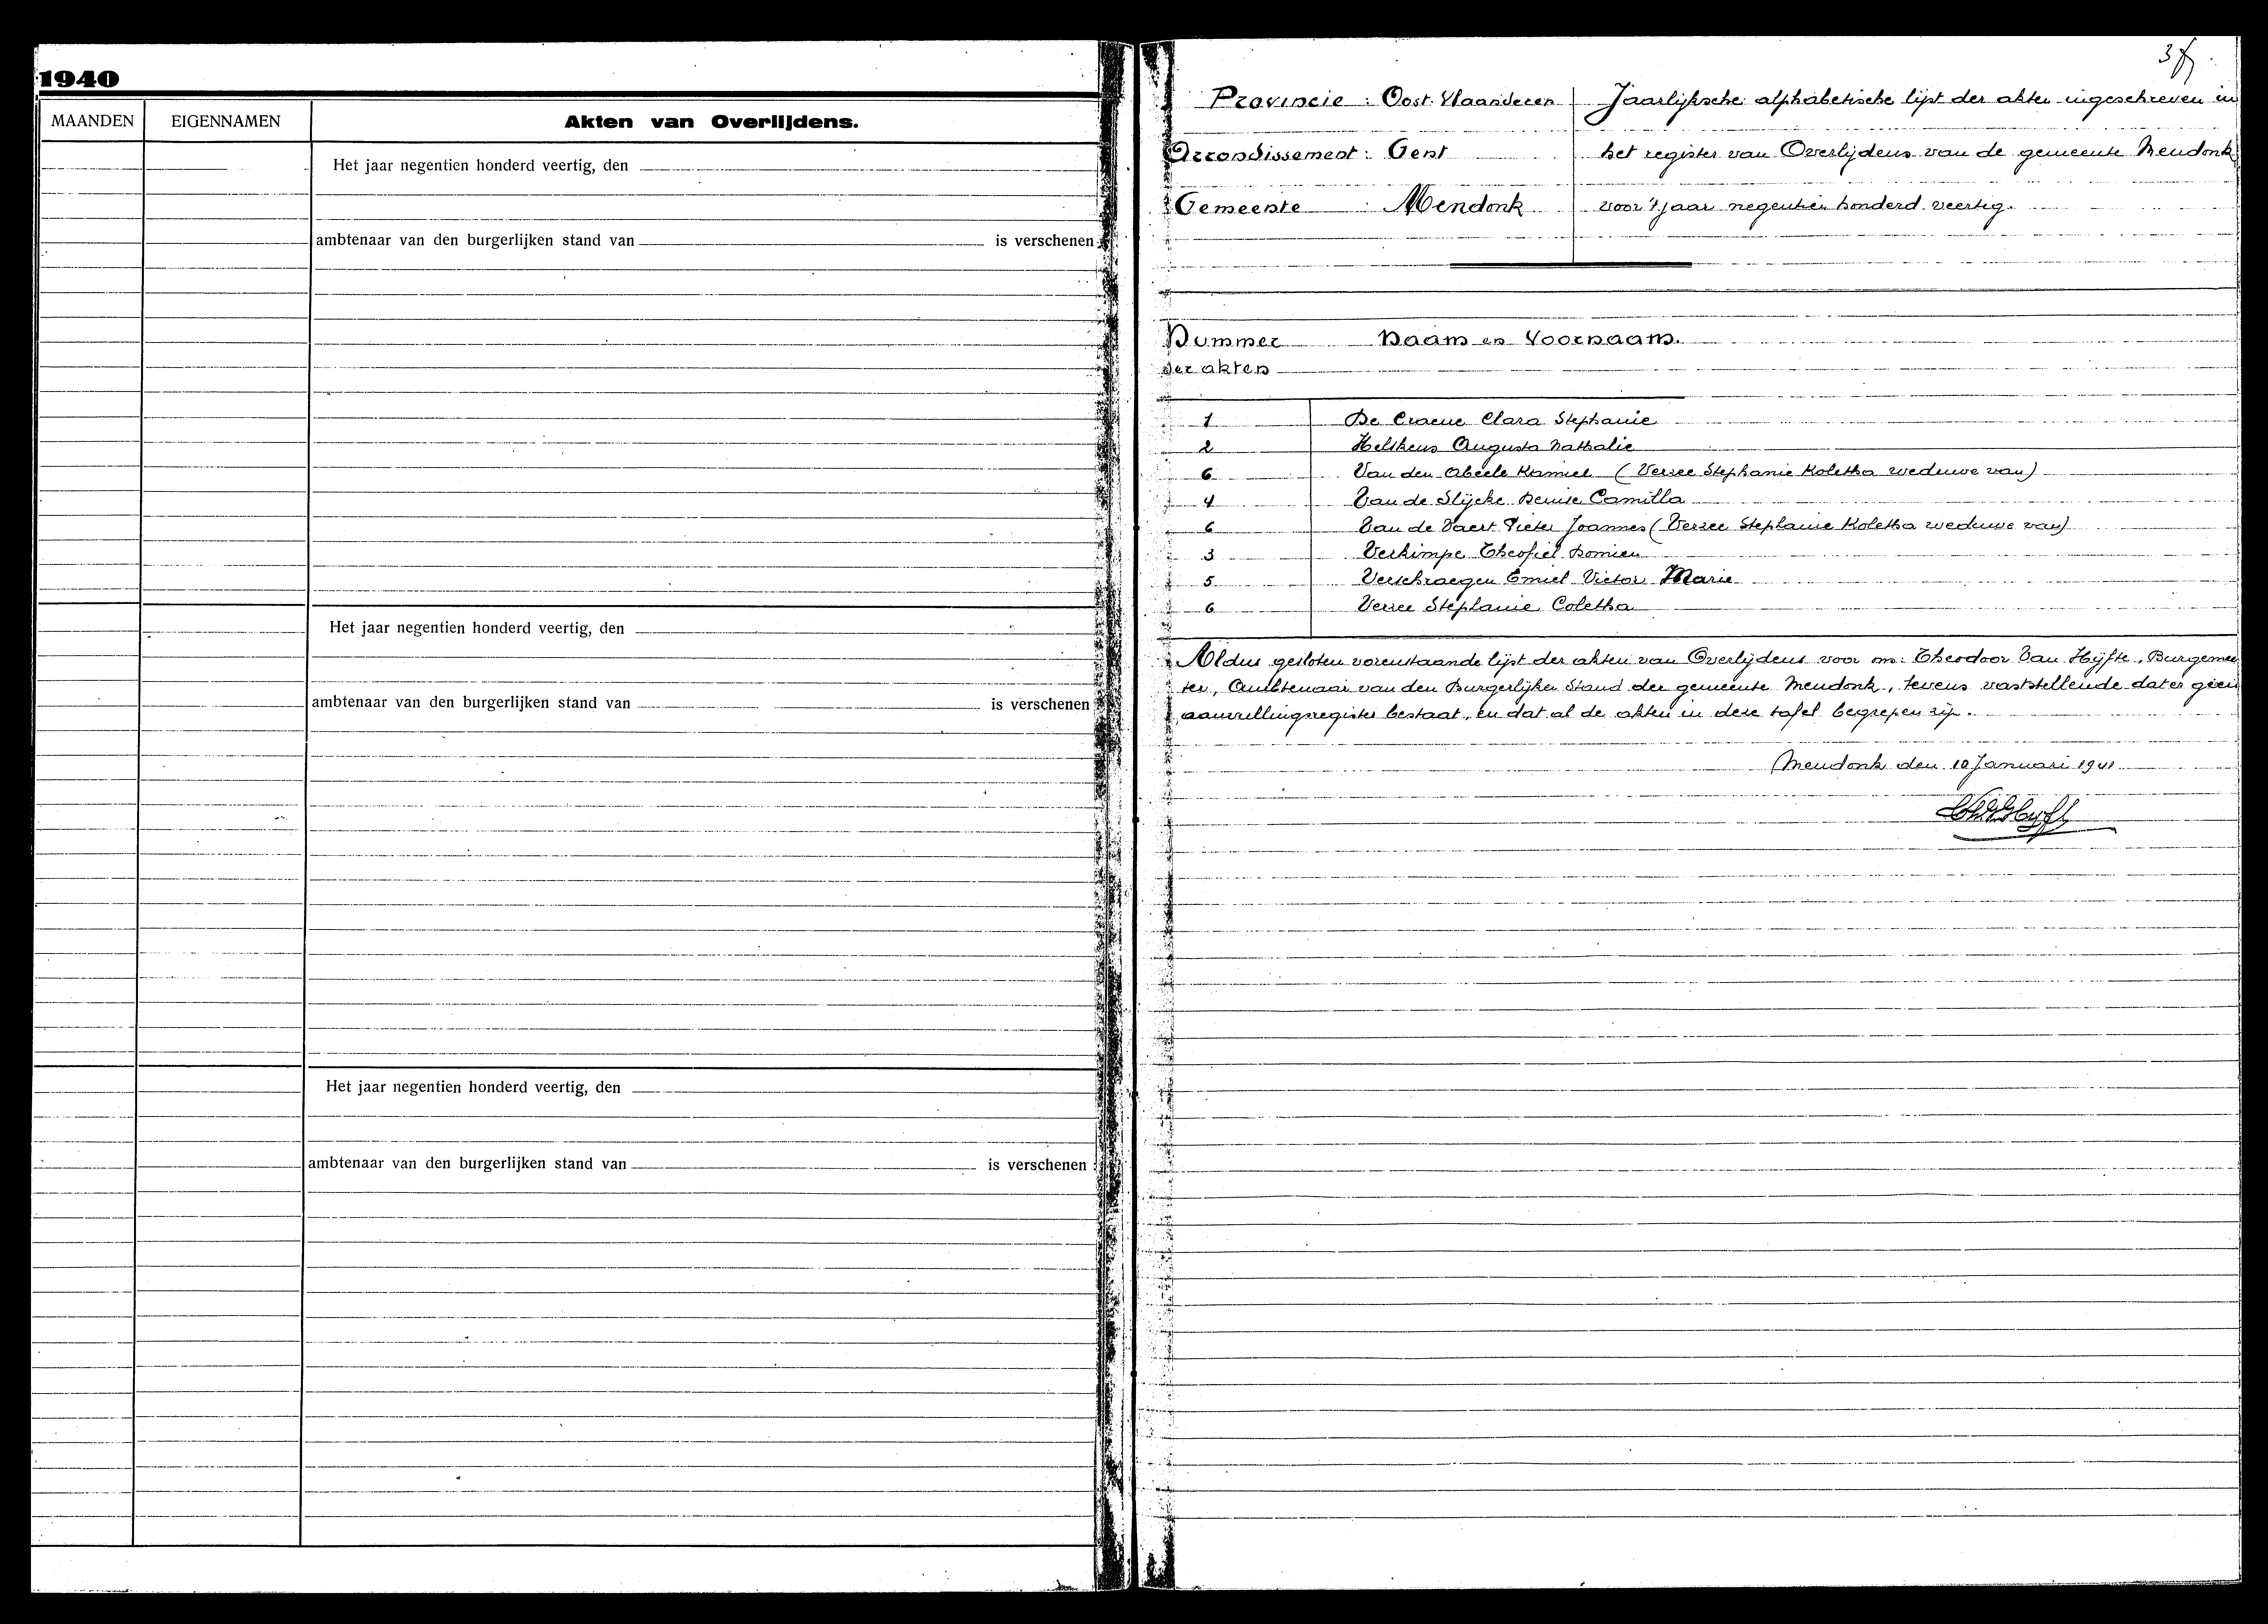 1940
MAANDEN EIGENNAMEN Akten van Overlijdens.
Het jaar negentien honderd veertig, den
ambtenaar van den burgerlijken stand van is verschenen
Het jaar negentien honderd veertig, den
ambtenaar van den burgerlijken stand van is verschenen
Het jaar negentien honderd veertig, den
ambtenaar van den burgerlijken stand van is verschenen
Provincie : Oost-Vlaanderen Jaarlijksche alphabetische lijst der akten ingeschreven in
Arrondissement : Gent het register van Overlijdens van de gemeente Mendonk
Gemeente : Mendonk voor 't jaar negentien honderd veertig.
Nummer Naam en Voornaam.
der akten
1 De Craene Clara Stephanie
2 Helskens Augusta Nathalie
6 Van den Abeele Kamiel (Verree Stephanie Koletha weduwe van)
4 Van de Slijcke Denise Camilla
6 Van de Vaert Pieter Joannes (Verree Stephanie Koletha weduwe van)
3 Verkimpe Theofiel Domien
5 Verschraegen Emiel Victor Marie
6 Verree Stephanie Coletha
Aldus gesloten vorenstaande lijst der akten van Overlijdens voor ons: Theodoor Van Hijfte, Burgemee
ter, Ambtenaar van den Burgerlijken Stand der gemeente Mendonk, tevens vaststellende dat er geen
aanvullingsregister bestaat, en dat al de akten in deze tafel begrepen zijn.
Mendonk den 10 Januari 1941